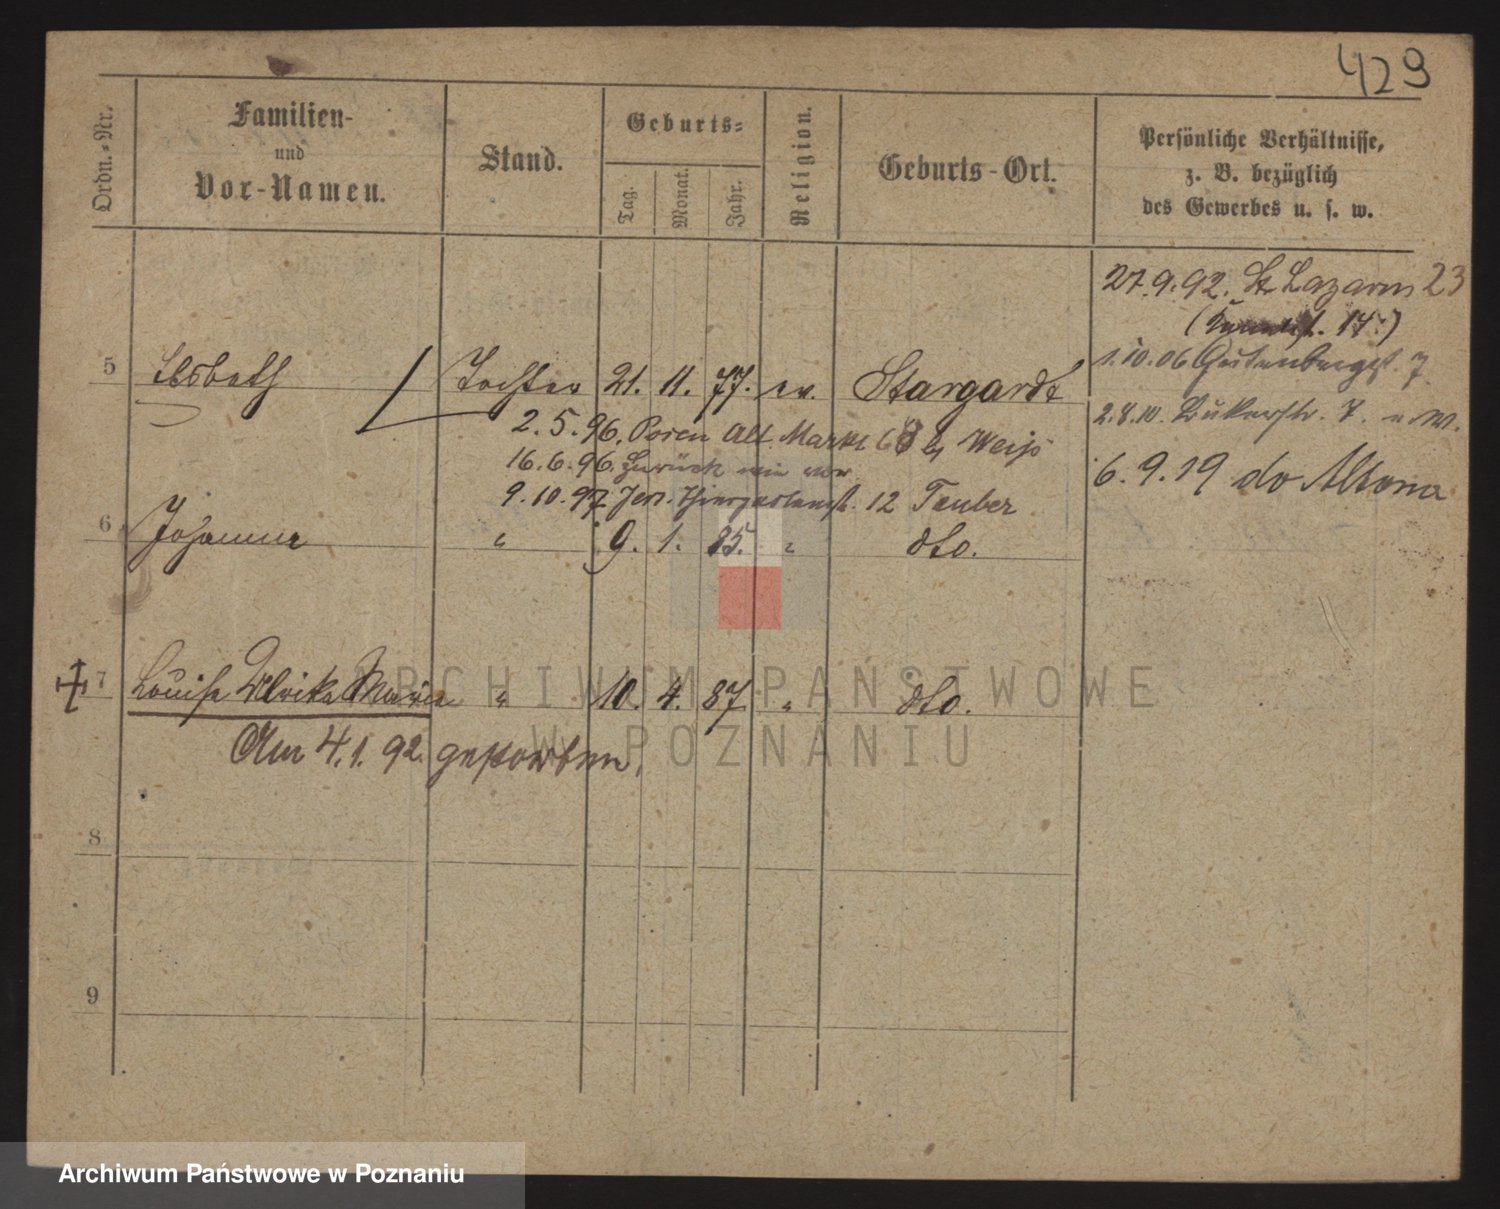 429
Ordn.-Nr.
Familien-
und
Vor-Namen.
Stand.
Geburts-
Tag.
Monat.
Jahr.
Religion.
Geburts-Ort.
Persönliche Verhältnisse,
z. B. bezüglich
des Gewerbes u. s. w.
27.9.92. St. Lazarus 23
14.)
1.10.06 Gutenbergst. 7
5 Elsbeth Tochter 21. 11. 77. ev. Stargardt
2.8.10. Bukerstr. 7. u. W.
2.5.96. Posen Alt. Markt b/ Weiß
16.6.96. Zurück wie vor
6.9.19 do Altona
9.10.97 Jer. Thiergartenst. 12 Teuber
6 Johanna " 9. 1. 85. " dto.
7 Louise Ulrike Maria " 10. 4. 87 " dto.
Am 4.1.92. gestorben.
8
9
ARCHIWUM PAŃSTWOWE
W POZNANIU
Archiwum Państwowe w Poznaniu